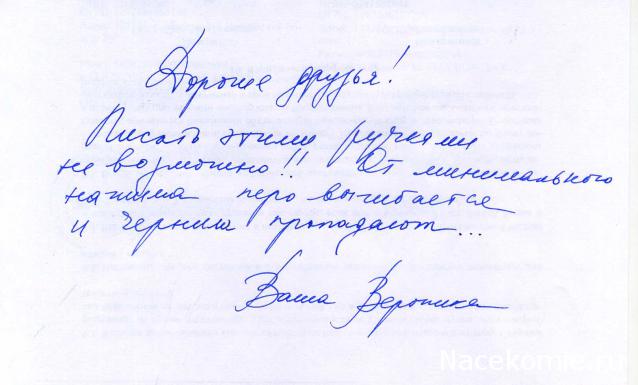 Дорогие друзья!
Писать этими ручками
не возможно!! От минимального
нажима перо выгибается
и чернила пропадают...
Ваша Вероника
Nacekomie.ru